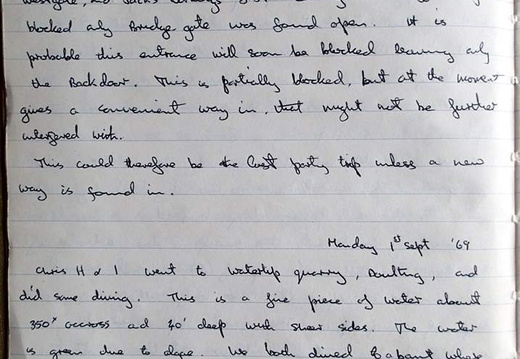 blocked only Bridge gate was found open. It is
probable this entrance will soon be blocked leaving only
the Backdoor. This is partially blocked, but at the moment
gives a convenient way in, that might not be further
interfered with.
This could therefore be the last party trip unless a new
way is found in.
Monday 1st Sept '69
Chris H & I went to Waterlip quarry, Doulting, and
did some diving. This is a fine piece of water about
350' accross ad 40' deep with sheer sides. The water
is green due to algae. We both dived to about